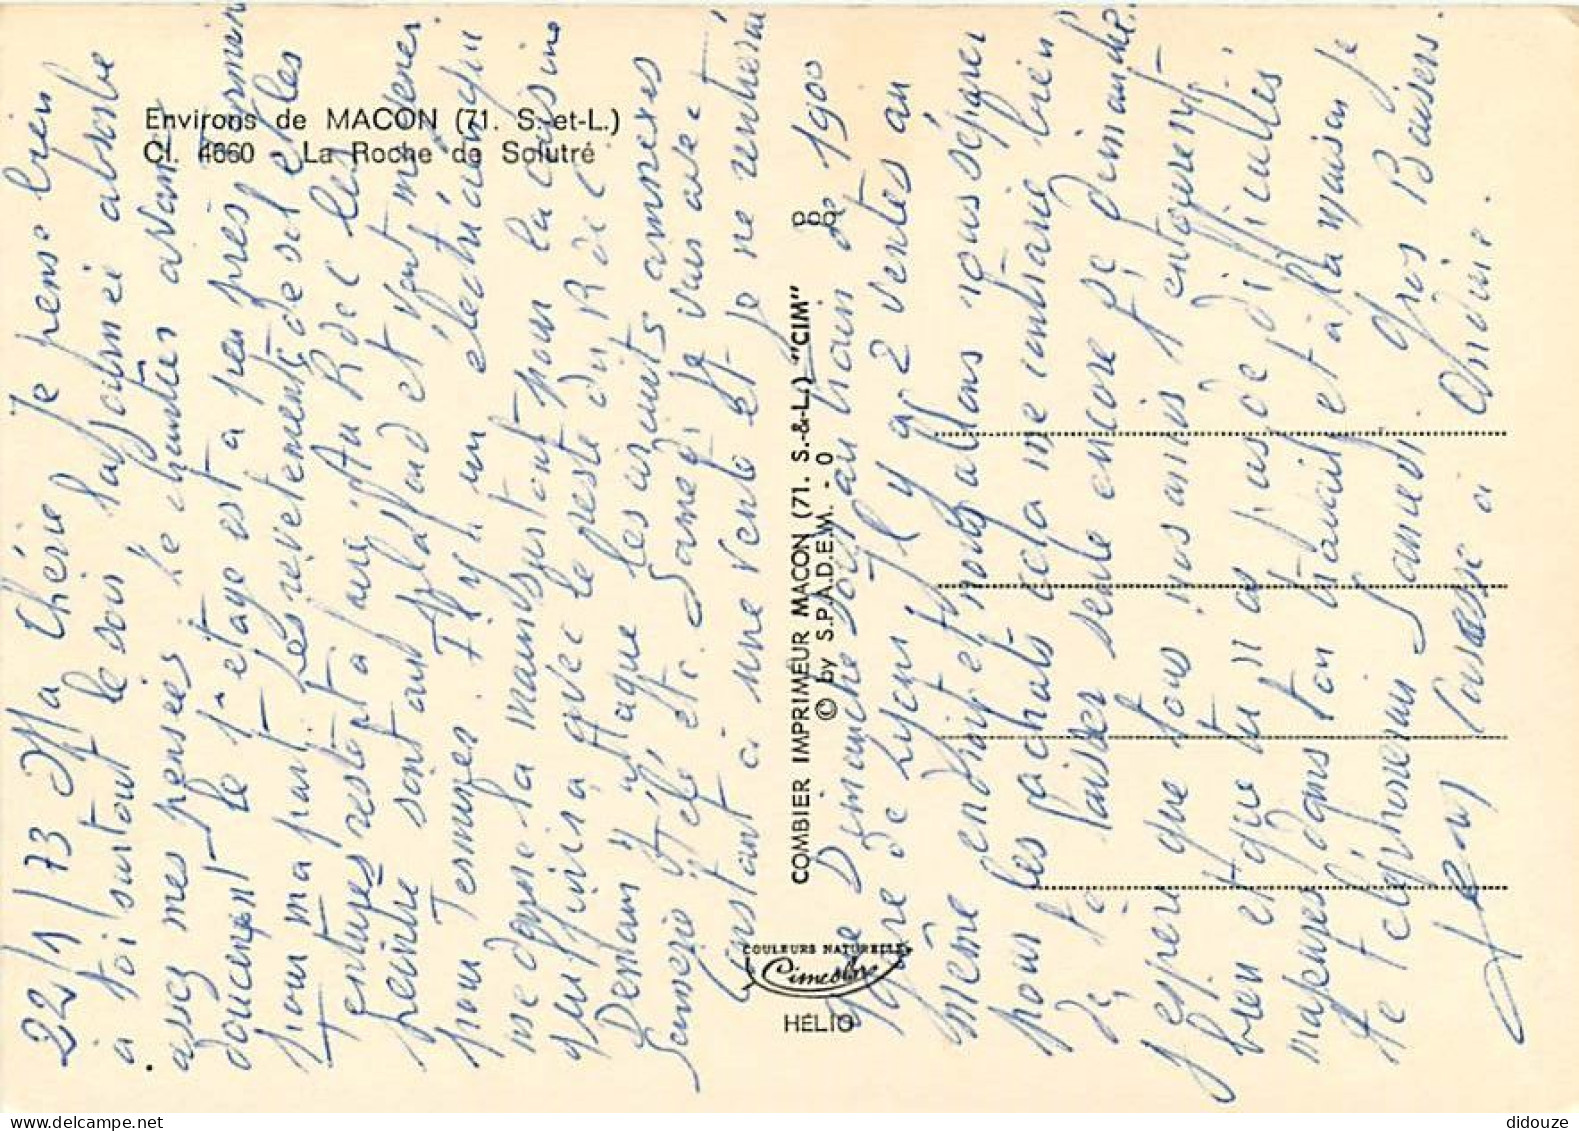 Environs de MACON (71. S.-et-L.)
Cl. 4660 La Roche de Solutré
22/1/73 Ma Chérie Je pense bien
à toi surtout le soir la journée absorbe
assez mes pensées. Le chantier avance
doucement le 1er étage est à peu près terminé
pour ma part. Les revêtements de sol et les
tentures restent à faire. Au R de C les
peintre sont au plafond et vont mener
pour Terminer. Il y a un électricien qui
me dans la mais surtout pour la cuisine
qui finira avec le reste du R de C.
Demain j'attaque les circuits annexes
Sonnerie Télé etc. Samedi je vais avec
Constant à une vente et je ne rentrerai
que Dimanche soir au train de 1900
gare de Lyon. Il y a 2 ventes au
même endroit et nous allons nous séparer
pour les achats cela me contrarie bien
de te laisser seule encore ce dimanche.
J'espère que tous nos amis t'entourent
bien et que tu n'as pas de difficultés
majeures dans ton travail et à la maison je
te téléphonerai Samedi. Gros Baisers
Jeny Caresse à Ondine.
COMBIER IMPRIMEUR MACON (71. S.-&-L.) "CIM"
© by S.P.A.D.E.M. - 0
COULEURS NATURELLES
Cimcolor
HÉLIO
didouze